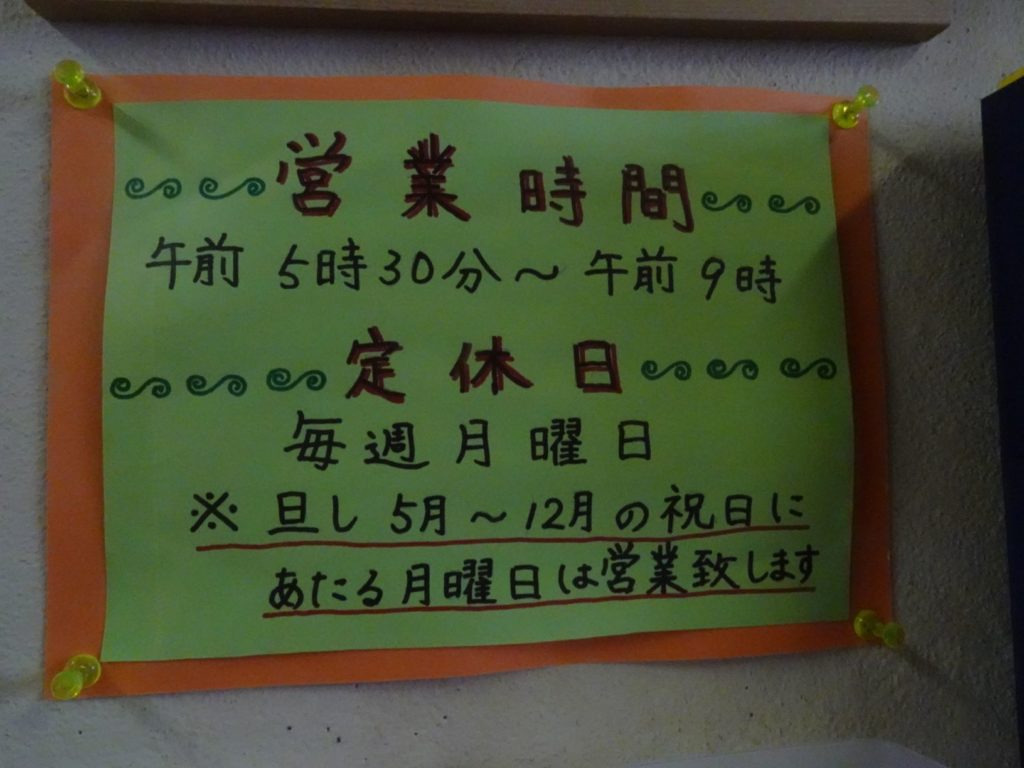 営業時間
午前 5時30分～午前 9時
定休日
毎週月曜日
※ 旦し 5月～12月の祝日に
あたる月曜日は営業致します